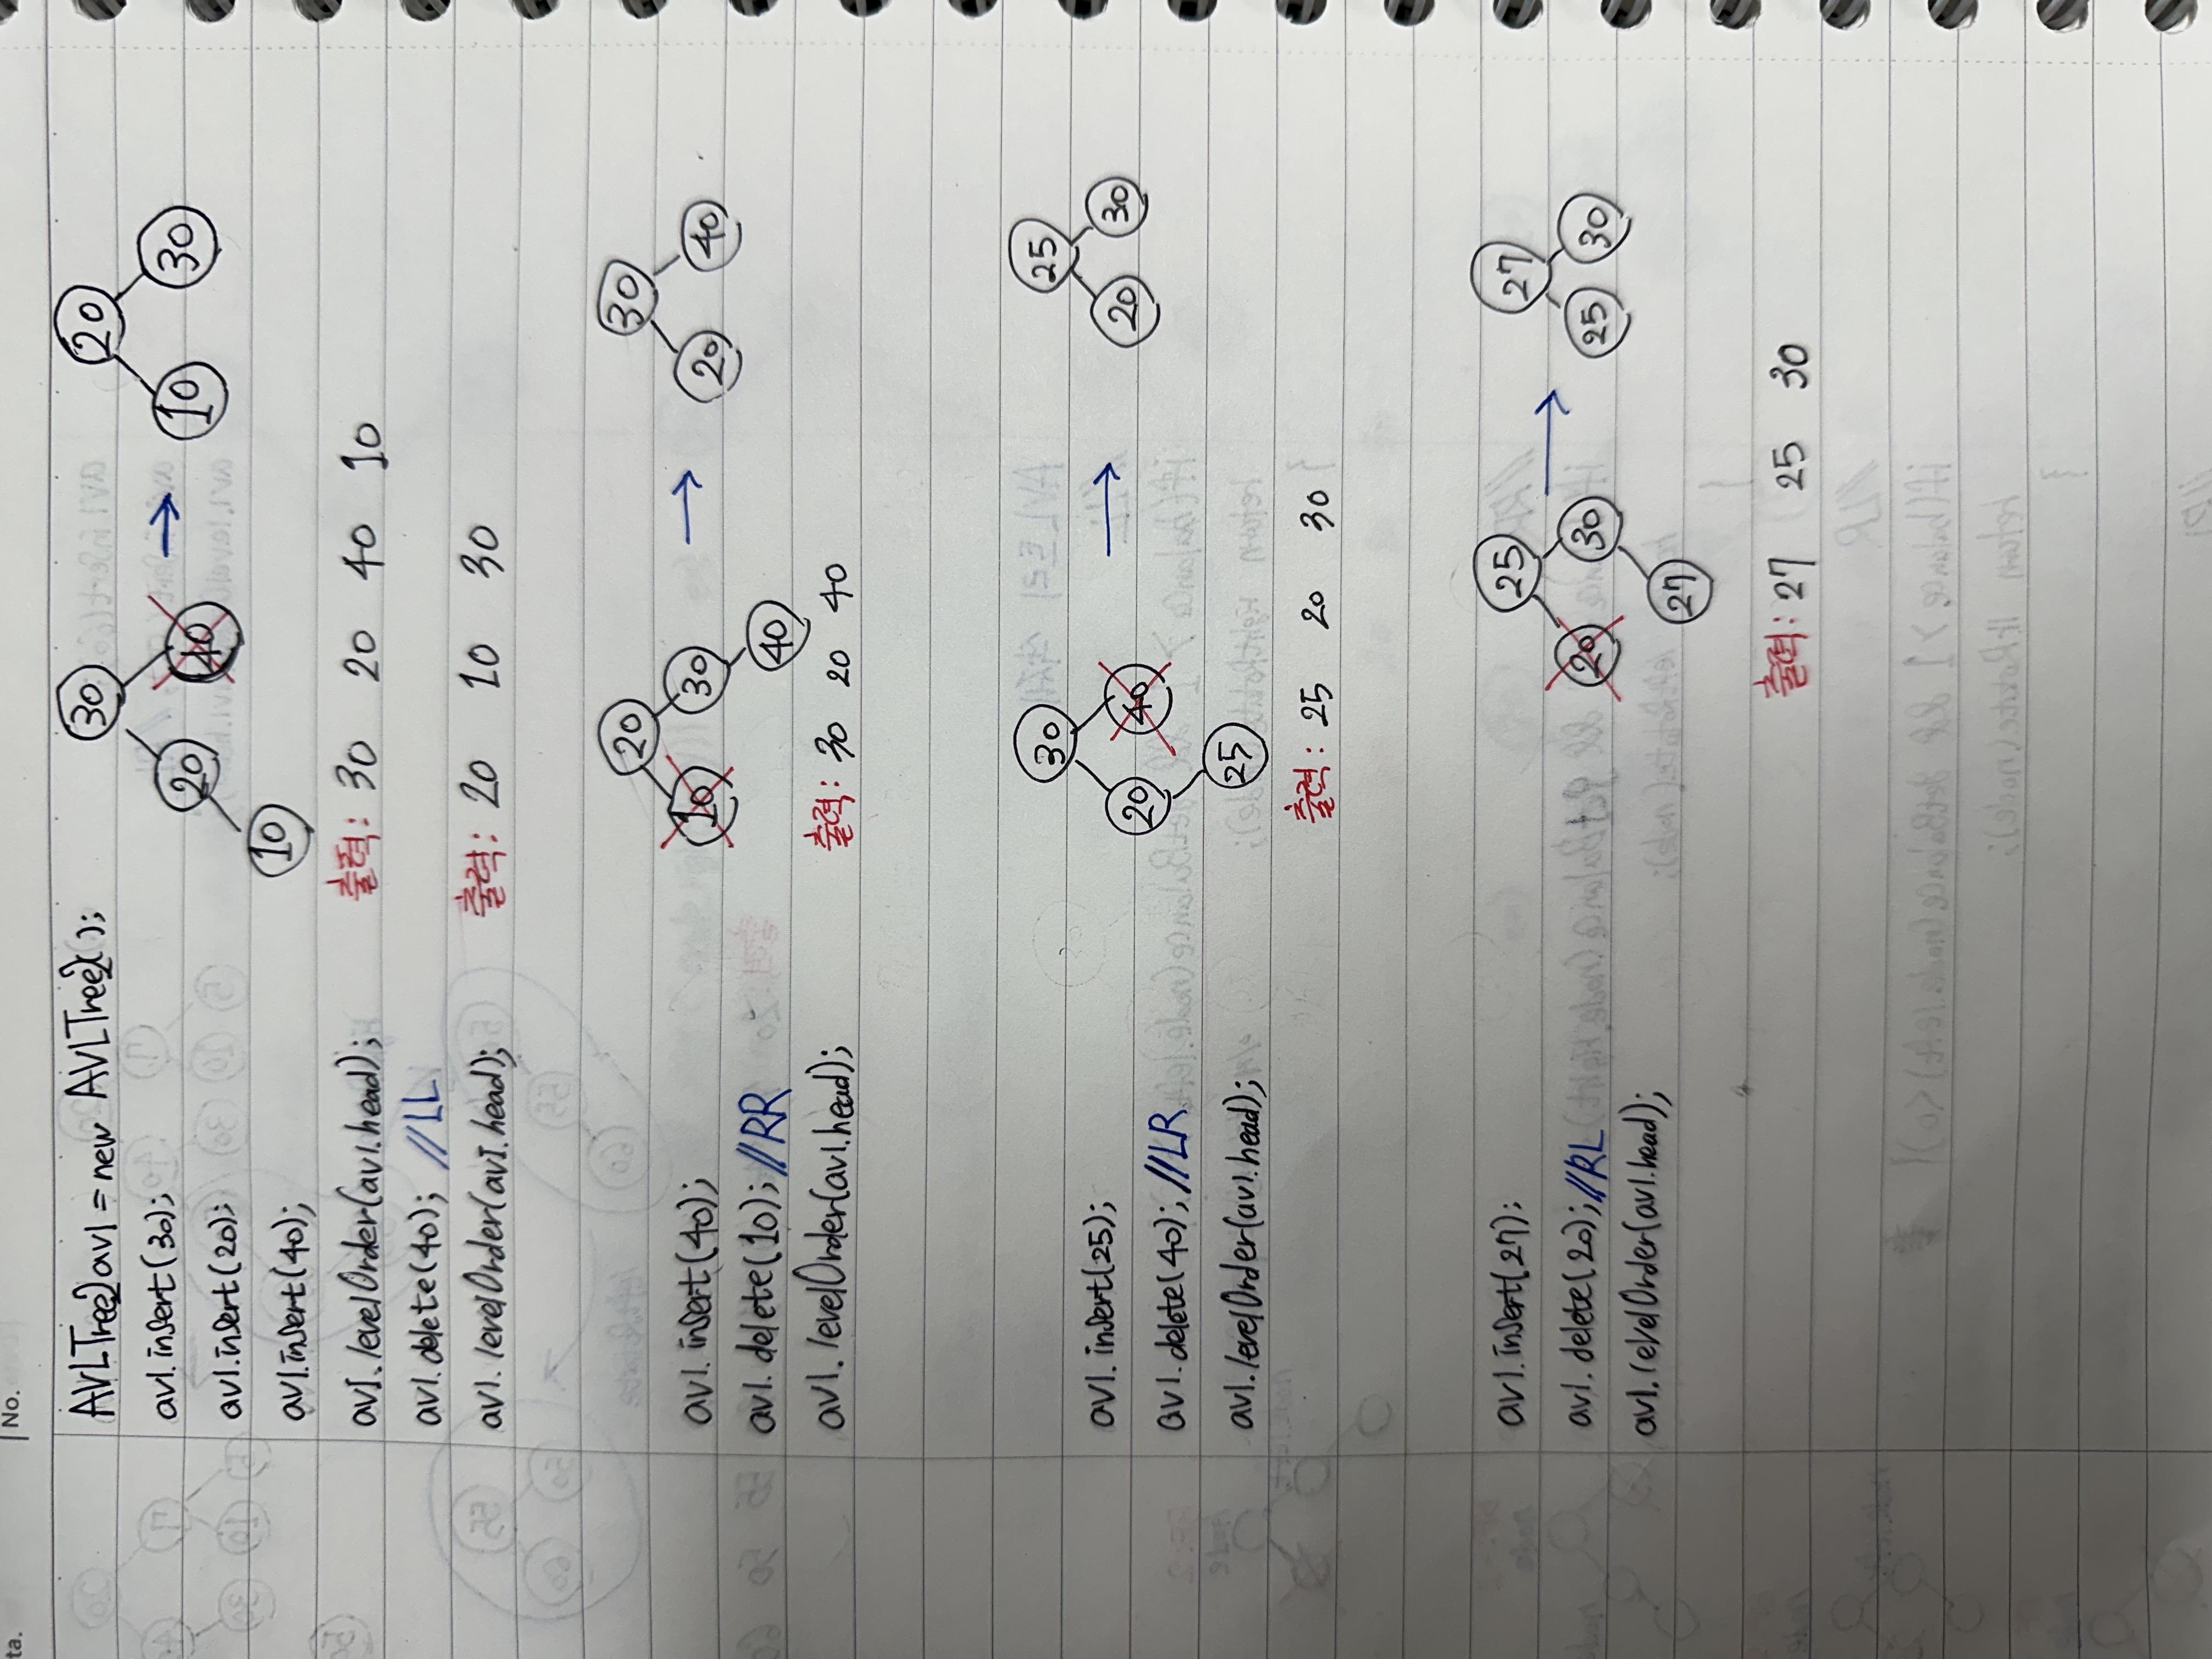 ta.
No.
AVLTree2 avl = new AVLTree2();
avl.insert(30);
avl.insert(20);
avl.insert(40);
30
20
40
10
→
20
10
30
avl.levelOrder(avl.head);
출력: 30 20 40 10
avl.delete(40); //LL
avl.levelOrder(avl.head);
출력: 20 10 30
avl.insert(40);
avl.delete(10); //RR
avl.levelOrder(avl.head);
20
10
30
40
→
30
20
40
출력: 30 20 40
avl.insert(25);
avl.delete(40); //LR
avl.levelOrder(avl.head);
30
20
40
25
→
25
20
30
출력: 25 20 30
avl.insert(27);
avl.delete(20); //RL
avl.levelOrder(avl.head);
25
20
30
27
→
27
25
30
출력: 27 25 30